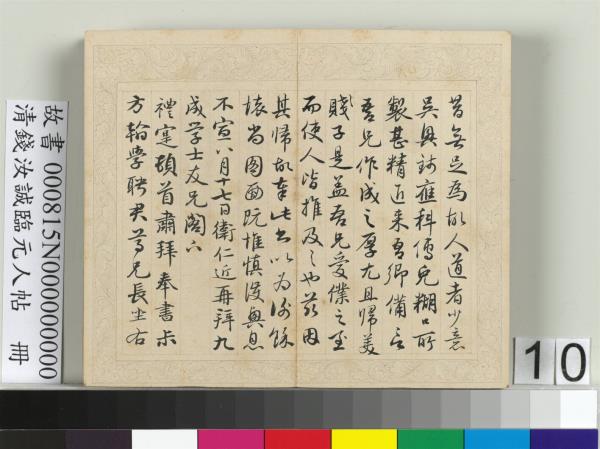 昔無足為故人道者少意
吳興錢應科傳免糊口所
製甚精近来吾鄉備言
吾兄作成之厚尤且歸美
賤子是益吾兄愛僕之至
而使人皆推及之也茲因
其歸故奉此書以為謝餘
懐當圖面既惟慎護興息
不宣八月十七日衛仁近再拜九
成學士友兄閣下
禮寔頓首肅拜奉書示
方翰學聘君尊兄長坐右
故書 000815N000000000
清錢汝誠臨元人帖 冊
10